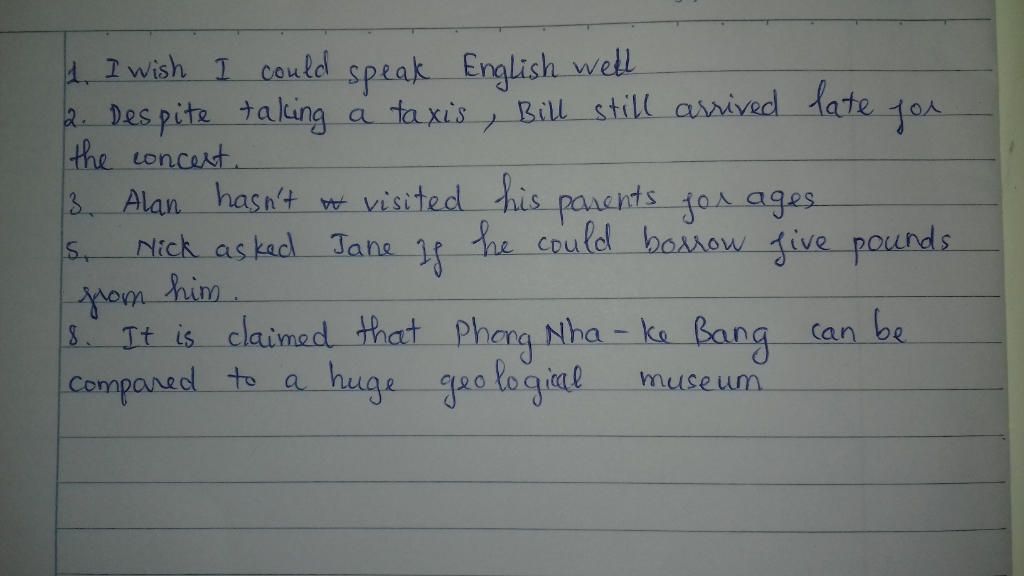 1. I wish I could speak English well
2. Despite taking a taxis, Bill still arrived late for
the concert.
3. Alan hasn't visited his parents for ages
5. Nick asked Jane If he could borrow five pounds
from him.
8. It is claimed that Phong Nha - Ke Bang can be
compared to a huge geological museum